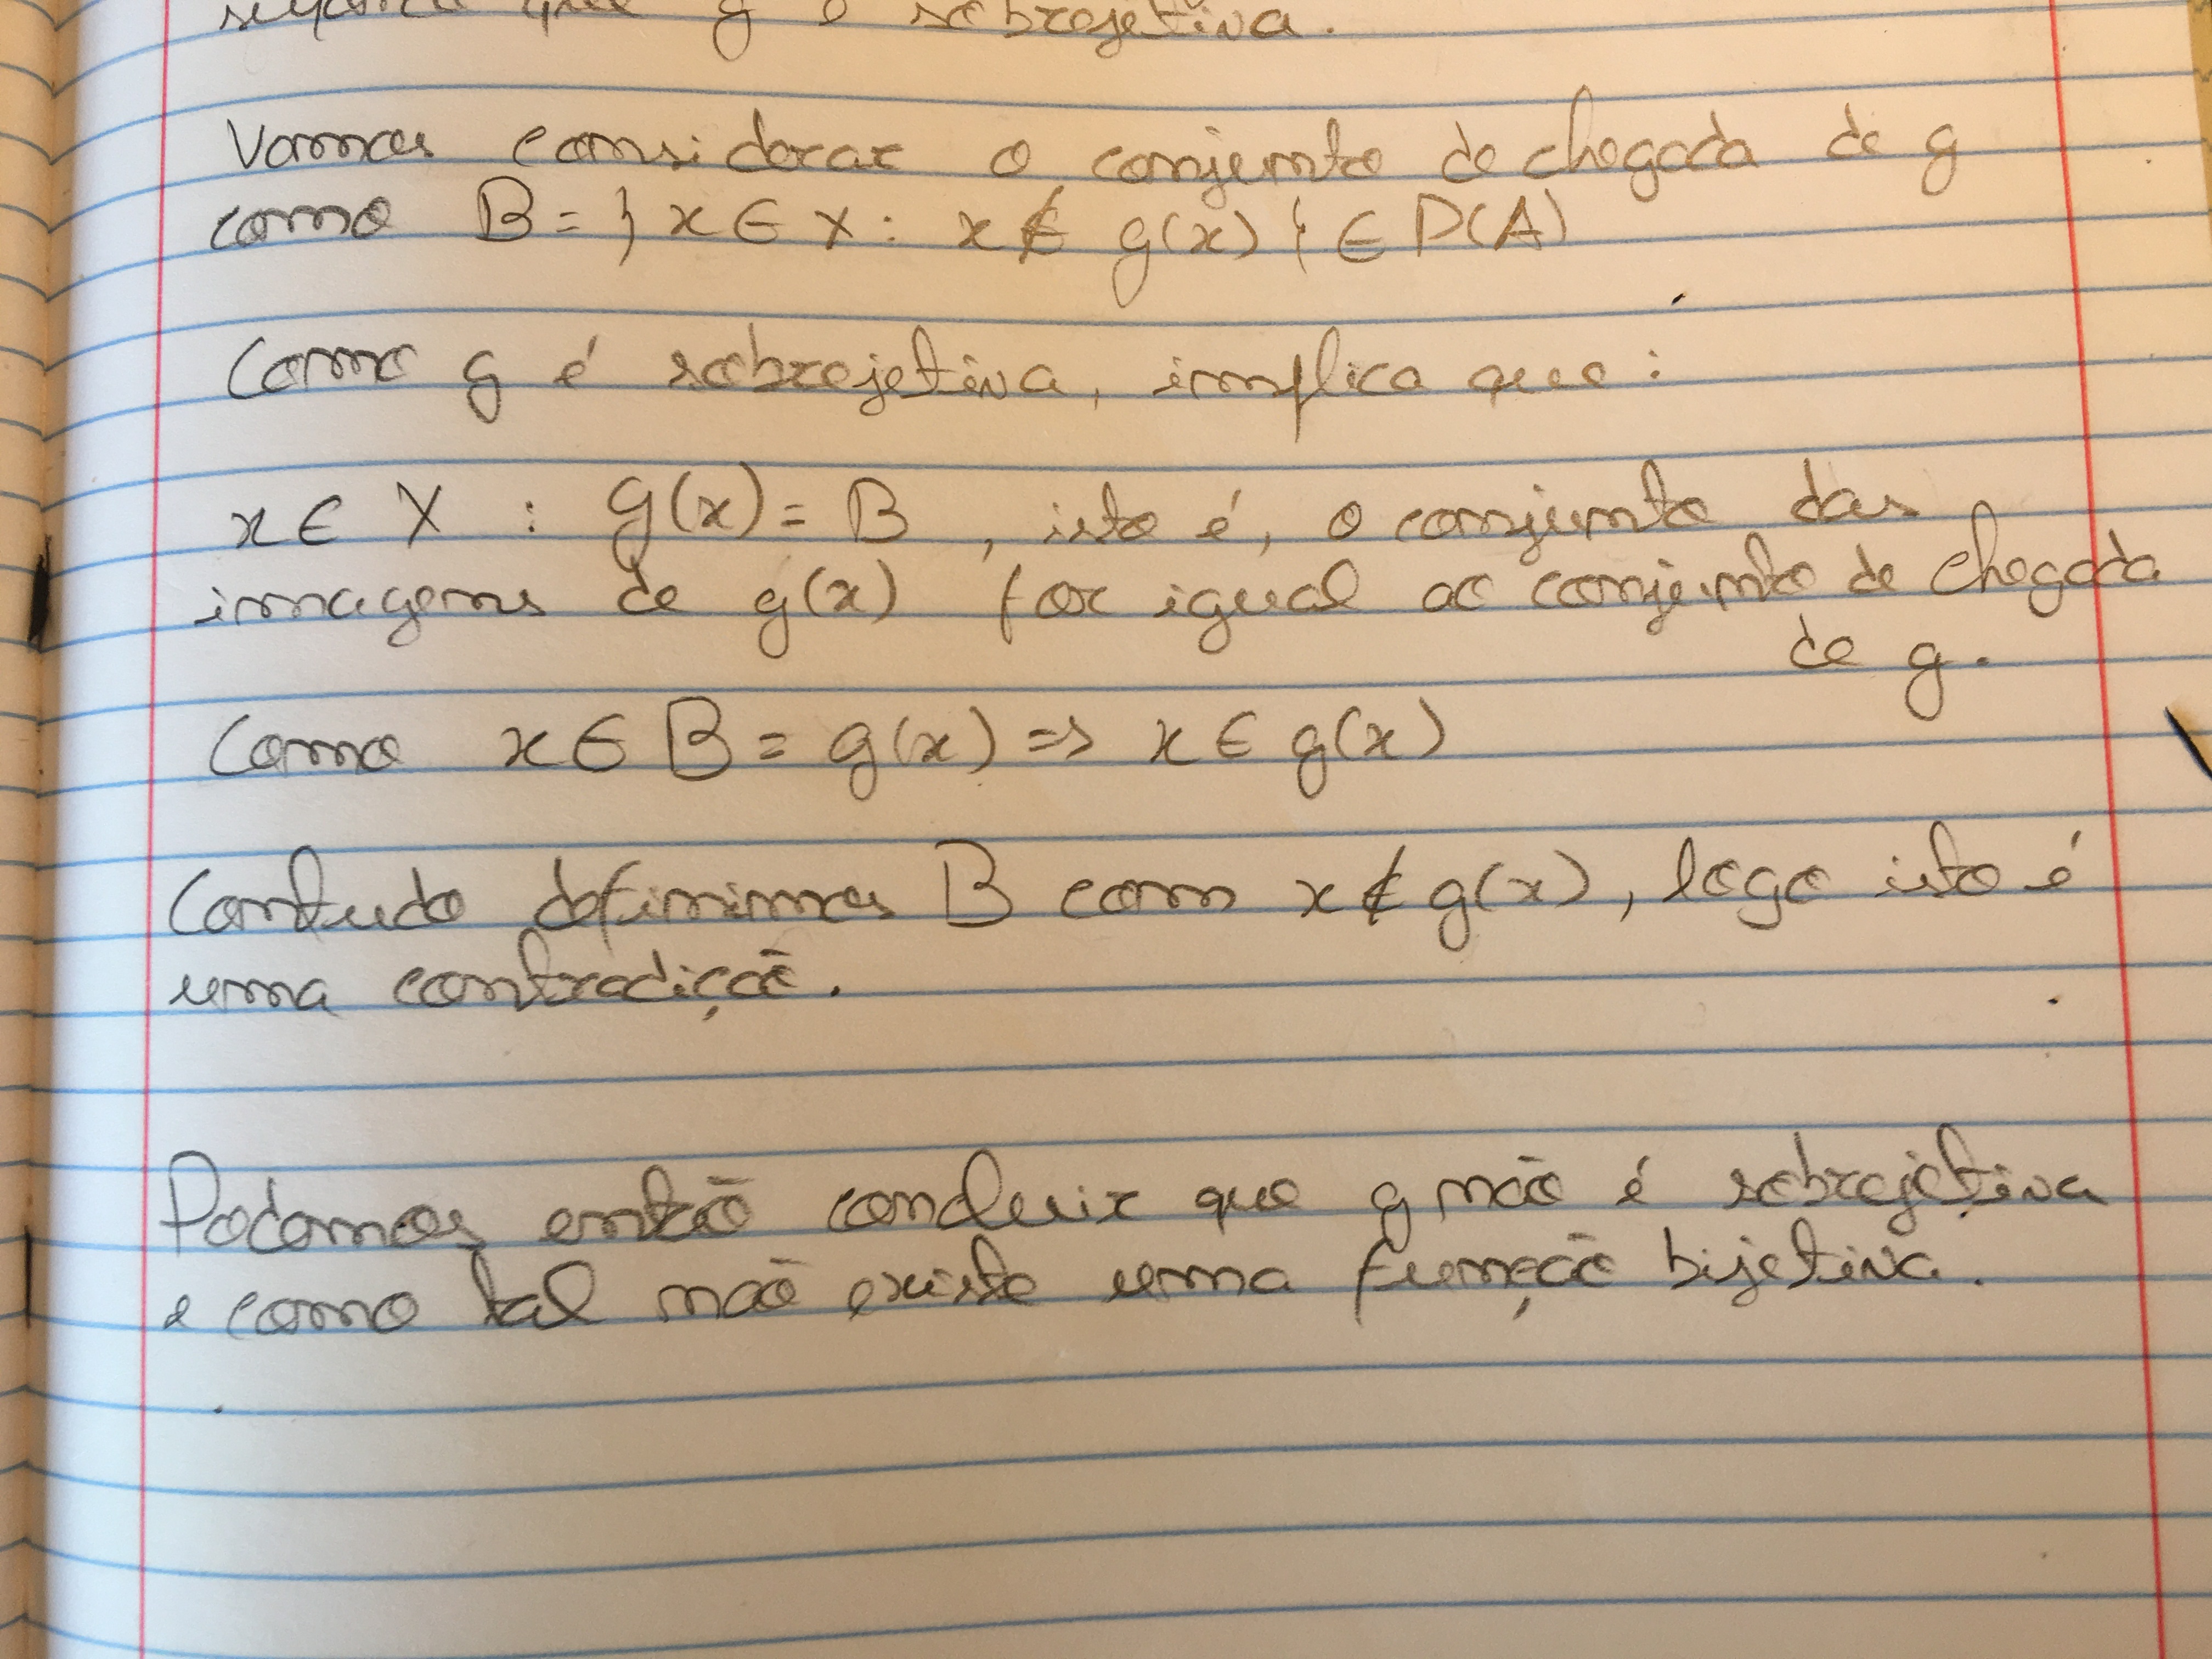 que g é sobrejetiva.
Vamos considerar o conjunto de chegada de g
como B = } x ∈ X : x ∉ g(x) { ∈ P(A)
Como g é sobrejetiva, implica que :
x ∈ X : g(x) = B , isto é, o conjunto das
imagens de g(x) for igual ao conjunto de chegada
de g.
Como x ∈ B = g(x) => x ∈ g(x)
Contudo definimos B com x ∉ g(x), logo isto é
uma contradição.
Podemos então concluir que g não é sobrejetiva
e como tal não existe uma função bijetiva.